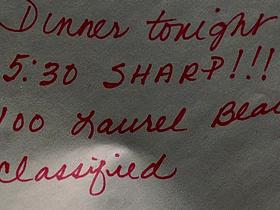 Dinner tonight
5:30 SHARP!!!
100 Laurel
classified